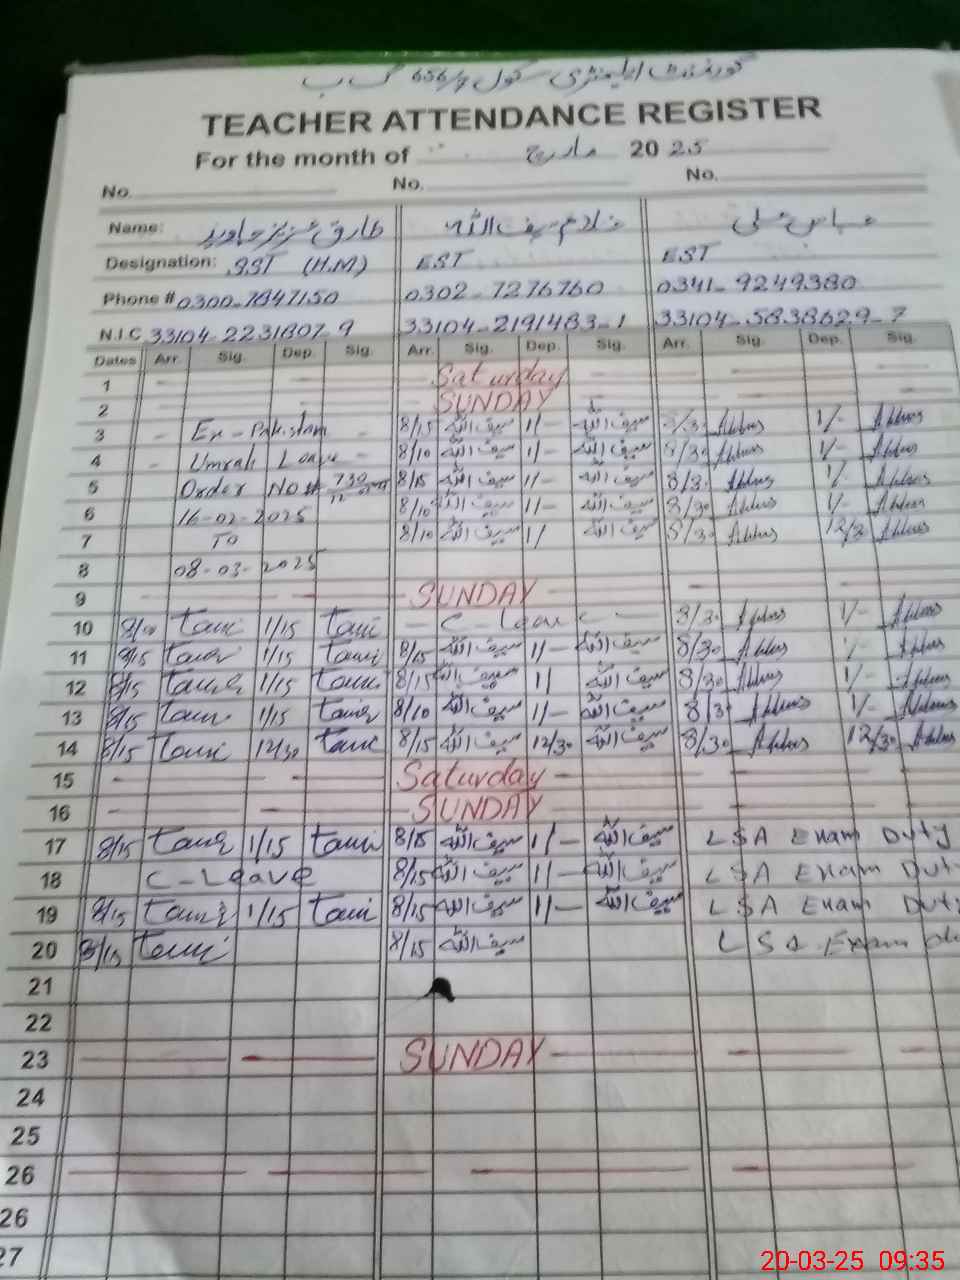 گورنمنٹ ایلیمنٹری سکول 656/7 گ ب
TEACHER ATTENDANCE REGISTER
For the month of مارچ 2025
No. No. No.
Name: طارق عزیز جاوید خادم سیف اللہ عباس علی
Designation: SST (H.M) EST EST
Phone # 0300-7847150 0302-7276760 0341-9249380
N.I.C 33104-2231807-9 33104-2191483-1 33104-5838629-7
Dates Arr. Sig. Dep. Sig. Arr. Sig. Dep. Sig. Arr. Sig. Dep. Sig.
1 Saturday
2 SUNDAY
3 Ex-Pakistan 8/15 سیف اللہ 1/- سیف اللہ 8/30 Abbas 1/- Abbas
4 Umrah Leave 8/10 سیف اللہ 1/- سیف اللہ 8/30 Abbas 1/- Abbas
5 Order No # 730 8/15 سیف اللہ 1/- سیف اللہ 8/30 Abbas 1/- Abbas
6 16-02-2025 8/10 سیف اللہ 1/- سیف اللہ 8/30 Abbas 1/- Abbas
7 To 8/10 سیف اللہ 1/ سیف اللہ 8/30 Abbas 12/30 Abbas
8 08-03-2025
9 SUNDAY
10 Tariq 1/15 Tariq C-Leave 8/30 Abbas 1/- Abbas
11 8/15 Tariq 1/15 Tariq 8/15 سیف اللہ 1/- سیف اللہ 8/30 Abbas 1/- Abbas
12 8/15 Tariq 1/15 Tariq 8/15 سیف اللہ 1/ سیف اللہ 8/30 Abbas 1/- Abbas
13 8/15 Tariq 1/15 Tariq 8/10 سیف اللہ 1/- سیف اللہ 8/30 Abbas 1/- Abbas
14 8/15 Tariq 12/30 Tariq 8/15 سیف اللہ 12/30 سیف اللہ 8/30 Abbas 12/30 Abbas
15 Saturday
16 SUNDAY
17 8/15 Tariq 1/15 Tariq 8/15 سیف اللہ 1/- سیف اللہ LSA Exam Duty
18 C-Leave 8/15 سیف اللہ 1/- سیف اللہ LSA Exam Dut
19 8/15 Tariq 1/15 Tariq 8/15 سیف اللہ 1/- سیف اللہ LSA Exam Duty
20 8/15 Tariq 8/15 سیف اللہ LSA Exam
21
22
23 SUNDAY
24
25
26
26
27
20-03-25 09:35